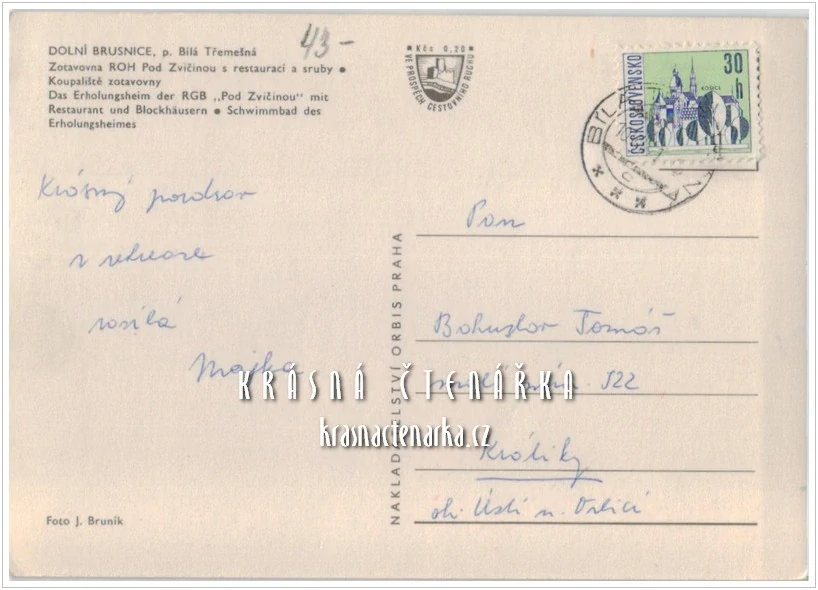 DOLNÍ BRUSNICE, p. Bílá Třemešná
Zotavovna ROH Pod Zvičinou s restaurací a sruby •
Koupaliště zotavovny
Das Erholungsheim der RGB „Pod Zvičinou" mit
Restaurant und Blockhäusern • Schwimmbad des
Erholungsheimes
43-
Kčs 0,20
VE PROSPĚCH CESTOVNÍHO RUCHU
ČESKOSLOVENSKO
30 h
BÍLÁ
Krásný pozdrav
z rekreace
posílá
Majka
NAKLADATELSTVÍ ORBIS PRAHA
Pan
Bohuslav Tomáš
522
Králíky
ok. Ústí n. Orlicí
KRÁSNÁ ČTENÁŘKA
krasnactenarka.cz
Foto J. Bruník